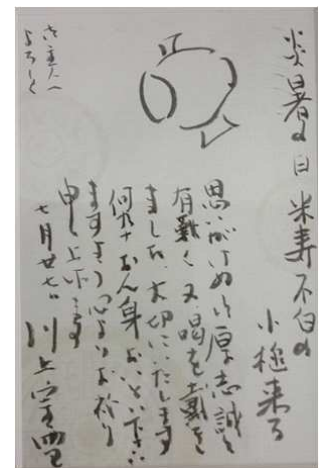 炎暑の日米寿不白の
小槌来る
思いがけぬ御厚志誠に
有難く又喝を戴き
ました大切にいたします
何卒お ん身おいとい下さい
ますよう心よりお祈り
申し上げます
七月廿七日
川上宗雪
御主人へ
よろしく